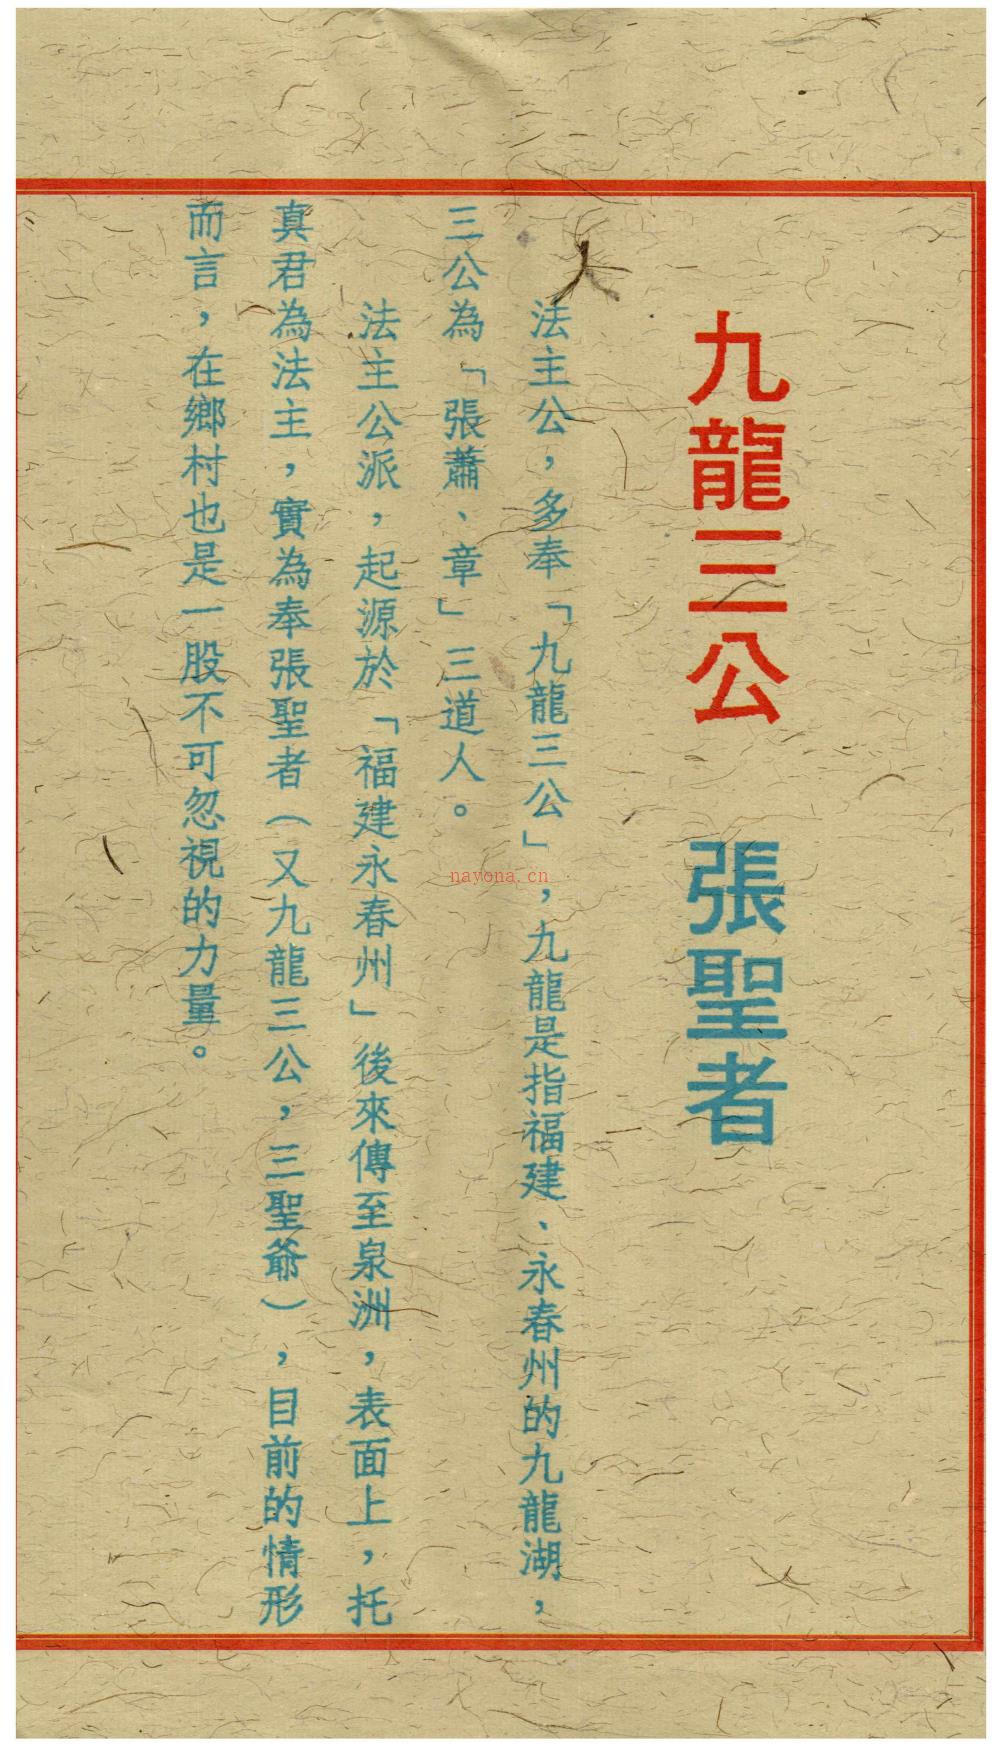 九龍三公　張聖者
法主公，多奉「九龍三公」，九龍是指福建、永春州的九龍湖，
三公為「張蕭、章」三道人。
法主公派，起源於「福建永春州」後來傳至泉洲，表面上，托
真君為法主，實為奉張聖者（又九龍三公，三聖爺），目前的情形
而言，在鄉村也是一股不可忽視的力量。
nayona.cn